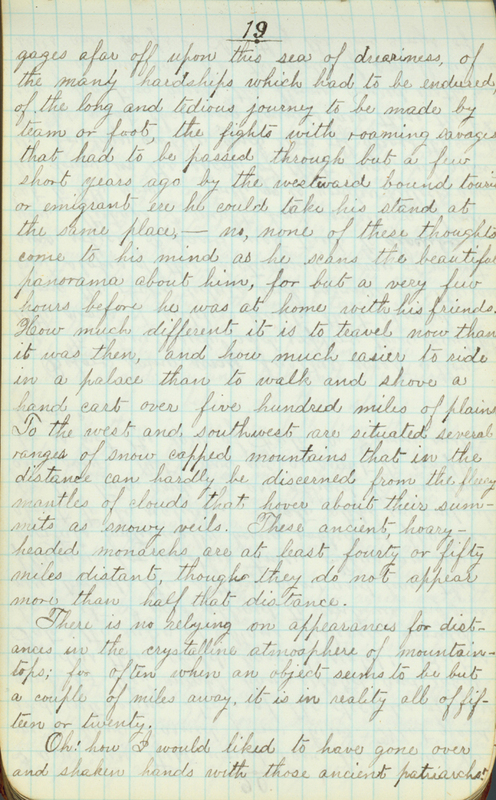 19
gages afar off upon this sea of dreariness, of
the many hardships which had to be endured,
of the long and tedious journey to be made by
team or foot, the fights with roaming savages
that had to be passed through but a few
short years ago by the westward bound touris
or emigrant ere he could take his stand at
the same place, — no, none of these thoughts
come to his mind as he scans the beautiful
panorama about him, for but a very few
hours before he was at home with his friends.
How much different it is to travel now than
it was then, and how much easier to ride
in a palace than to walk and shove a
hand cart over five hundred miles of plains
To the west and southwest are situated several
ranges of snow capped mountains that in the
distance can hardly be discerned from the fleecy
mantles of clouds that hover about their sum-
mits as snowy veils. These ancient, hoary-
headed monarchs are at least fourty or fifty
miles distant, though they do not appear
more than half that distance.
There is no relying on appearances for dist-
ances in the crystalline atmosphere of mountain-
tops; for often when an object seems to be but
a couple of miles away, it is in reality all of fif-
teen or twenty.
Oh! how I would liked to have gone over
and shaken hands with those ancient patriarchs!